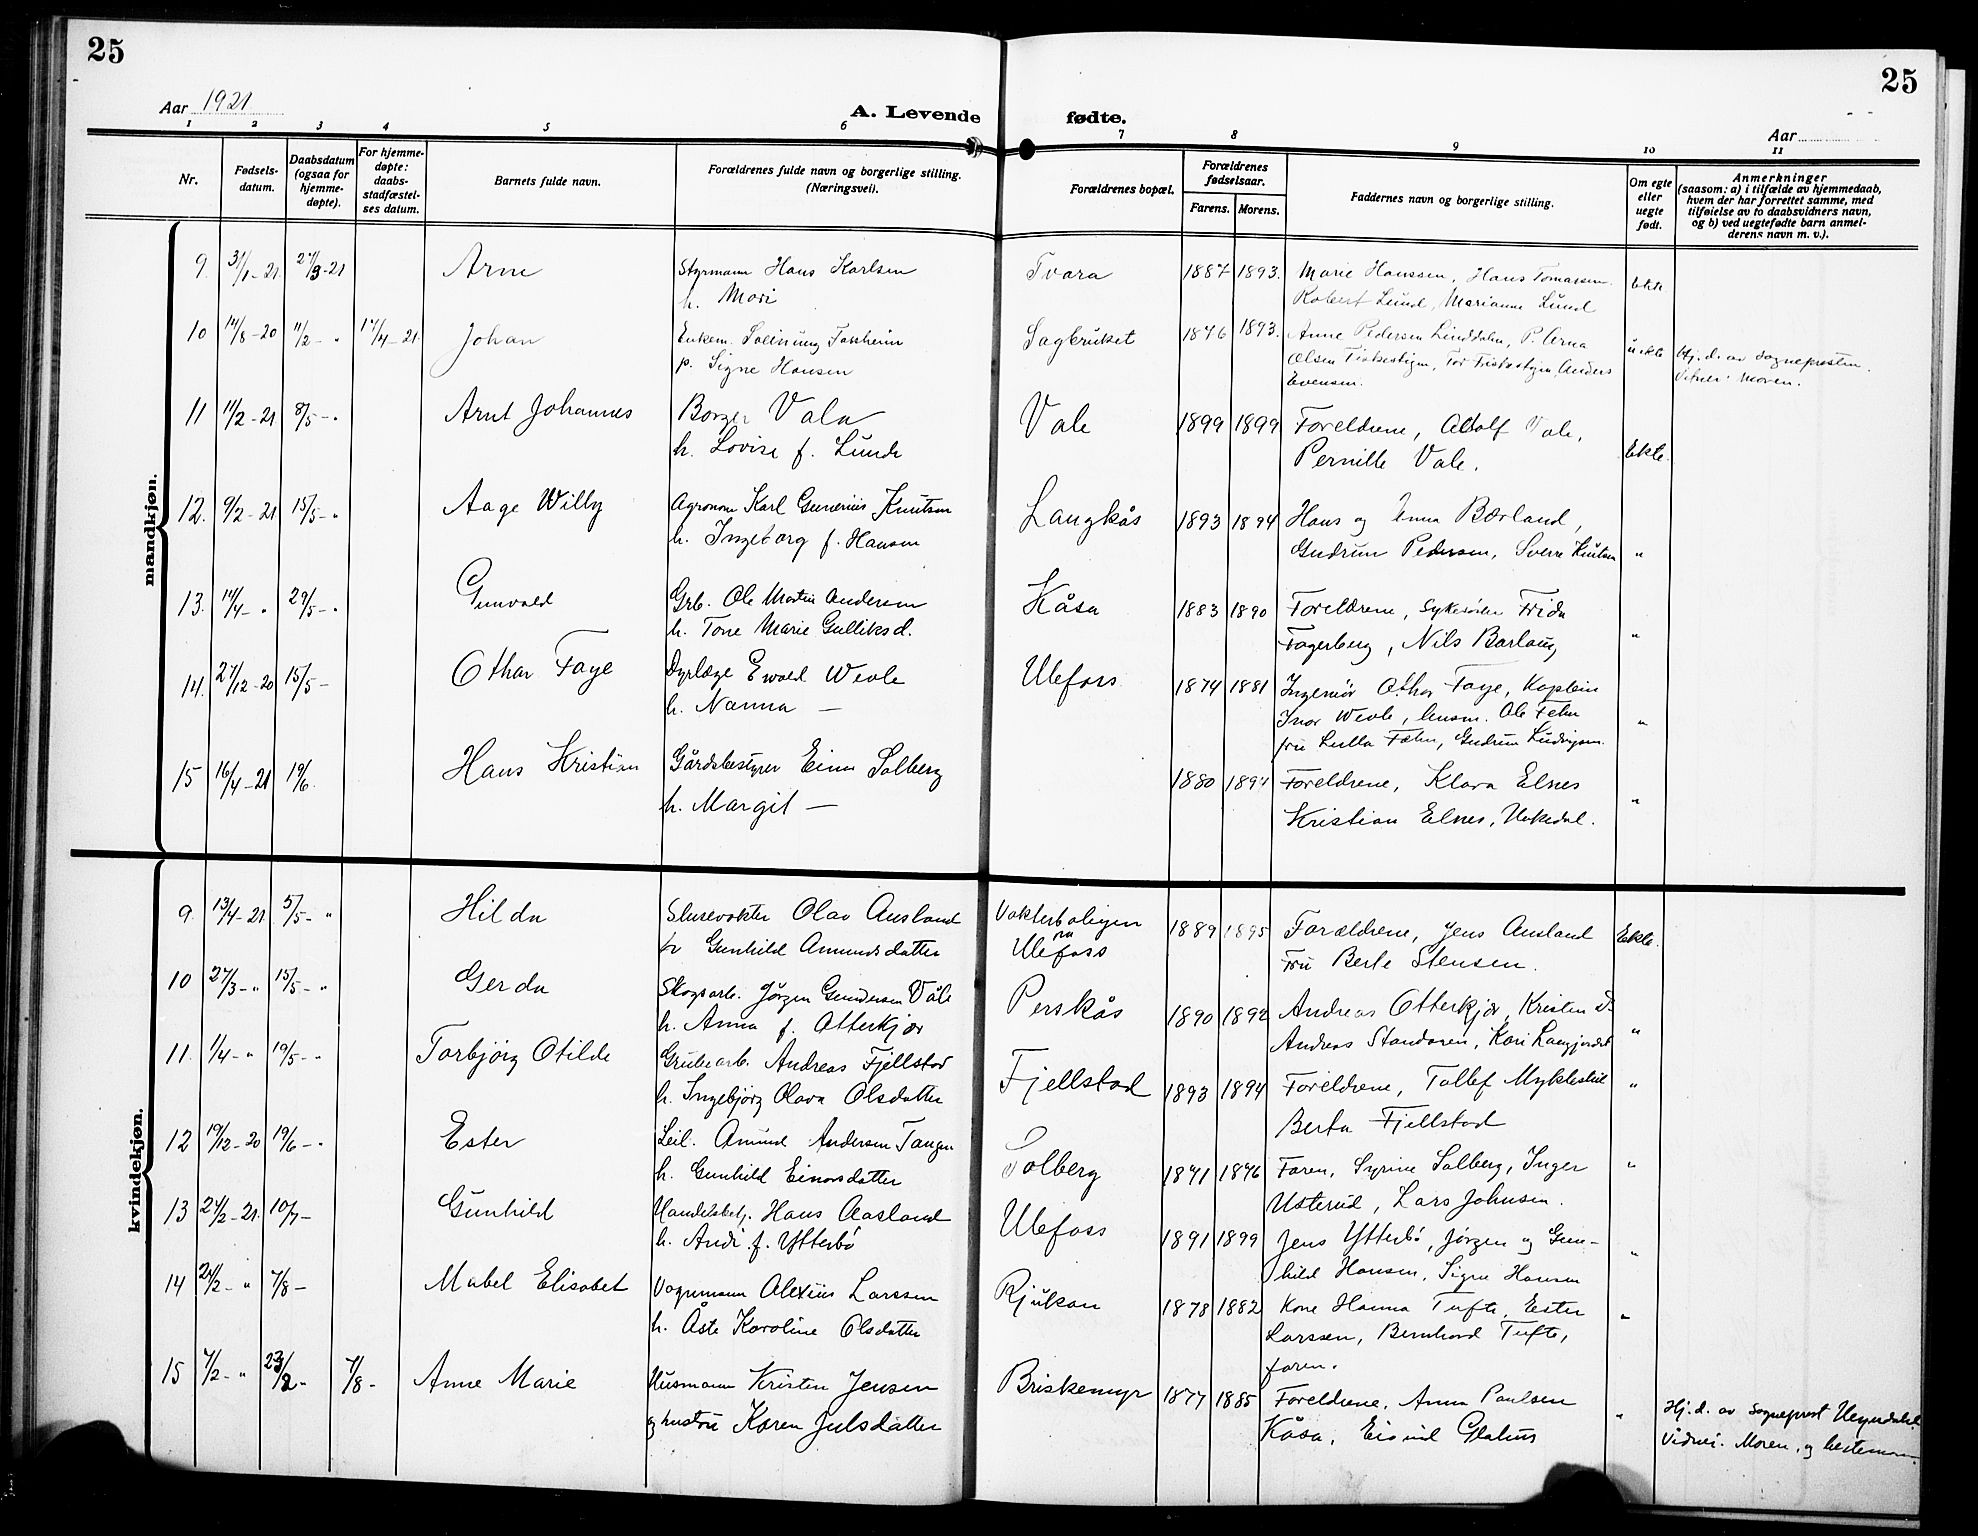 25
25
Aar 1921
A. Levende fødte.
Aar
1 2 3 4 5 6 7 8 9 10 11
Nr.
Fødsels-
datum.
Daabsdatum
(ogsaa for
hjemme-
døpte).
For hjemme-
døpte:
daabs-
stadfæstel-
ses datum.
Barnets fulde navn.
Forældrenes fulde navn og borgerlige stilling.
(Næringsvei).
Forældrenes bopæl.
Forældrenes
fødselsaar.
Farens. Morens.
Faddernes navn og borgerlige stilling.
Om egte
eller
uegte
født.
Anmerkninger
(saasom: a) i tilfælde av hjemmedaab,
hvem der har forrettet samme, med
tilføielse av to daabsvidners navn,
og b) ved uegtefødte barn anmel-
derens navn m. v.).
mandkjøn.
9. 3/1-21 27/3-21 Arne Styrmann Hans Karlsen Tvara 1887 1893. Marie Hanssen, Hans Tomassen
h. Mari Robert Lund, Marianne Lund
10 14/8-20 11/2-" 17/4-21. Johan Enkem. Signe Hansen Sagbruket 1876 1893. Anne Pedersen Linddalen, P. Arna u.ekte Hj. d. av sognepresten.
p. Signe Hansen Olsen Fiskestigen, Tor Fiskestigen, Anders
Evensen. Moren.
11 11/2-21 8/5-" Arnt Johannes Borger Vala Vale 1899 1899 Foreldrene, Adolf Vale, Ekte.
h. Lovise f. Lunde Pernille Vale.
12. 9/2-21 15/5-" Aage Willy Agronom Karl Gunerius Knutsen Langkås 1893 1894 Hans og Anna Bærland,
h. Ingeborg f. Hansen Gudrun Pedersen, Sverre Knutsen "
13. 14/4-" 29/5-" Gunvald Grb. Ole Martin Andersen Kåsa 1883 1890 Foreldrene, Frida
h. Tone Marie Gulliksd. Fagerberg, Nils Barlaug "
14. 27/12-20 15/5- Othar Faye Dyrlæge Ewald Wevle Ulefoss 1874 1881 Ingeniør Othar Faye, Kaptein
h. Nanna — Ivar Wevle, lensm. Ole Fehn "
fru Lulla Fæhn, Gudrun Ludvigsen.
15 16/4-21 19/6. Hans Kristian Gårdsbestyrer Einar Solberg 1880 1894 Foreldrene, Klara Elnes
h. Margit — Kristian Elnes, "
kvindekjøn.
9. 13/4-21. 5/5-" Hilda Slusevokter Olav Ausland Vokterboligen 1889 1895 Forældrene, Jens Ausland Ekte.
h. Gunhild Amundsdatter Ulefoss Fru Berte Stensen.
10 27/3-" 15/5-" Gerda Skogsarb. Jørgen Gundersen Våle Perskås 1890 1892 Andreas Otterkjær, Kristen D.
h. Anna f. Otterkjær Andreas Standaren, Kari Langjordet "
11. 1/4-" 19/5-" Torbjørg Otilde Grubearb. Andreas Fjellstad Fjellstad 1893 1894 Foreldrene, Tollef Myklestul "
h. Ingebjørg Olava Olsdatter Berta Fjellstad
12 19/12-20 19/6-" Ester Leil. Amund Andersen Tangen Solberg 1871 1876 Faren, Syrine Solberg, Inger "
h. Gunhild Einarsdatter Usterud, Lars Johnsen.
13 24/2-21. 10/7- Gunhild Handelsbetj. Hans Aasland Ulefoss 1891 1899 Jens Ytterbø, Jørgen og Gun- "
h. Andi. f. Ytterbø hild Hansen, Signe Hansen
14 24/2-" 7/8- Mabel Elisabet Vognmann Alexius Larssen Rjukan 1878 1882 Kone Hanna Tufte, Ester "
h. Åste Karoline Olsdatter Larssen, Bernhard Tufte,
faren.
15 7/2-" 23/2- 7/8- Anne Marie Husmann Kristen Jensen Briskemyr 1877 1885 Foreldrene, Anna Paulsen " Hj. d. av sogneprest
og hustru Karen Julsdatter Kåsa, Eivind Glahus Vidner. Moren, og bestemor.